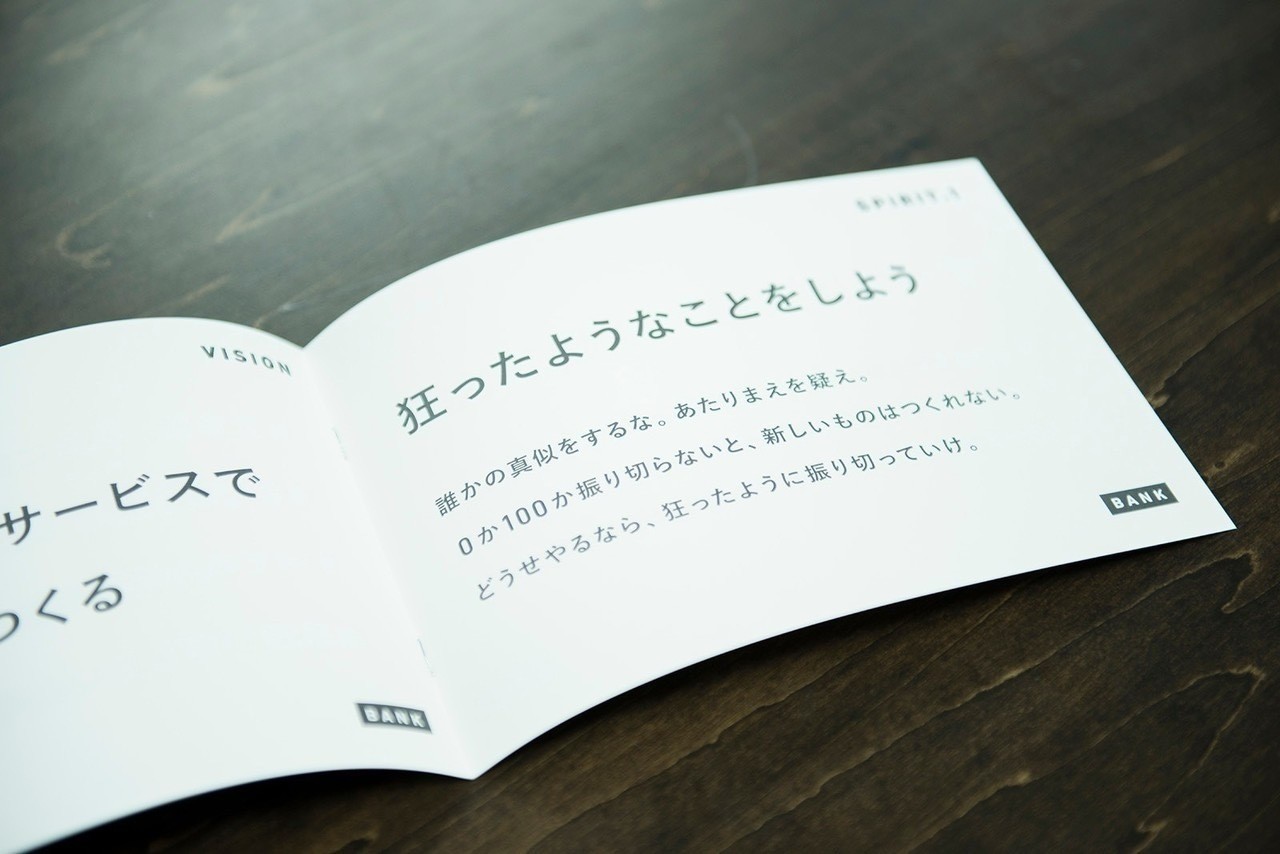 VISION
サービスで
つくる
BANK
SPIRIT.1
狂ったようなことをしよう
誰かの真似をするな。あたりまえを疑え。
0か100か振り切らないと、新しいものはつくれない。
どうせやるなら、狂ったように振り切っていけ。
BANK